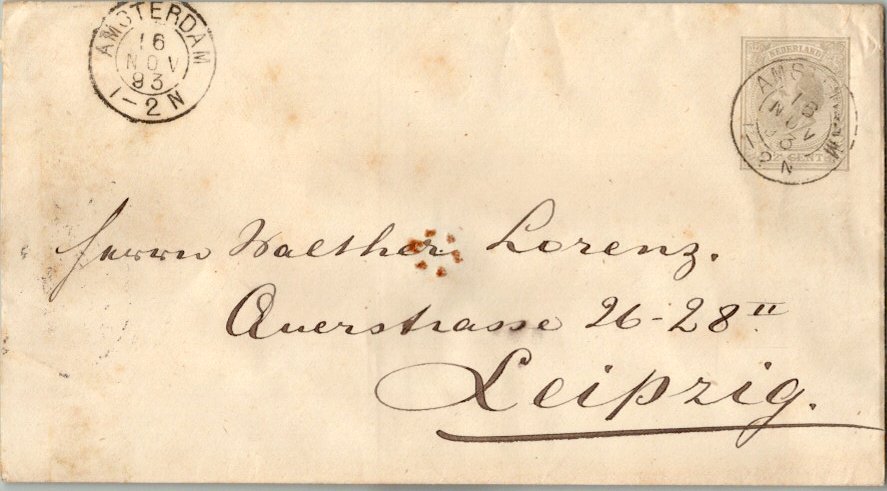 AMSTERDAM
16
NOV
93
1-2N
NEDERLAND
AMS M
16
NOV
93
1-2 N
CENT
Herrn Walther Lorenz.
Querstrasse 26-28 II
Leipzig.